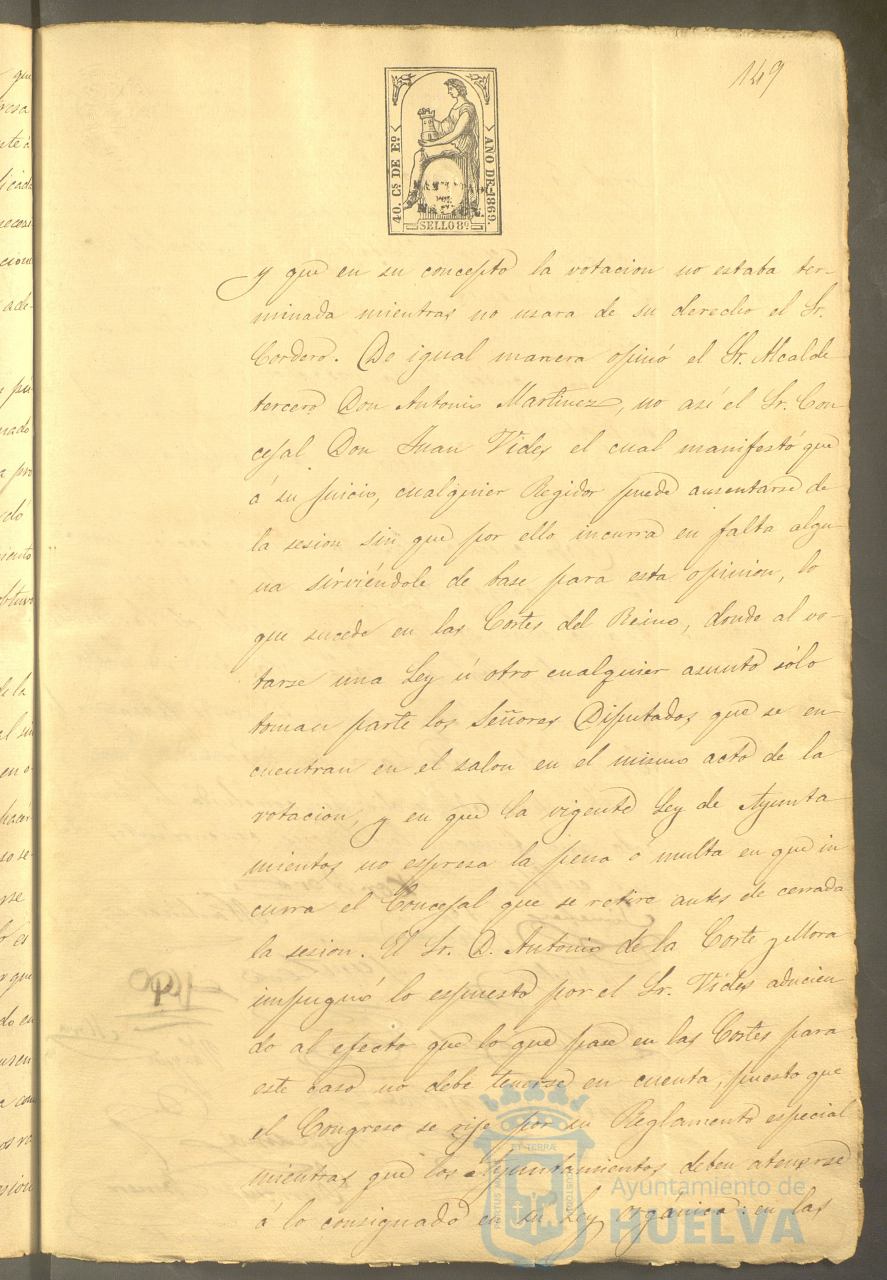 149
40. Cs DE Eo.
AÑO DE 1869.
SELLO 8º
y que en su concepto la votacion no estaba ter-
minada mientras no usara de su derecho el Sr.
Cordero. De igual manera opinó el Sr. Alcalde
tercero Don Antonio Martinez, no así el Sr. Con-
cejal Don Juan Vides el cual manifestó que
á su juicio, cualquier Regidor puede ausentarse de
la sesion sin que por ello incurra en falta algu-
na sirviéndole de base para esta opinion, lo
que sucede en las Cortes del Reino, donde al vo-
tarse una Ley ú otro cualquier asunto sólo
toman parte los Señores Diputados que se en
cuentran en el salon en el mismo acto de la
votacion, y en que la vigente Ley de Ayunta
mientos no espresa la pena ó multa en que in
curra el Concejal que se retire antes de cerrada
la sesion. El Sr. D. Antonio de la Corte y Mora
impugnó lo espuesto por el Sr. Vides aducien
do al efecto que lo que pase en las Cortes para
este caso no debe tenerse en cuenta, puesto que
el Congreso se rije por su Reglamento especial
mientras que los Ayuntamientos deben atenerse
á lo consignado en su Ley orgánica: en las
ET TERRÆ
PORTUS
CUSTODIA
Ayuntamiento de
HUELVA